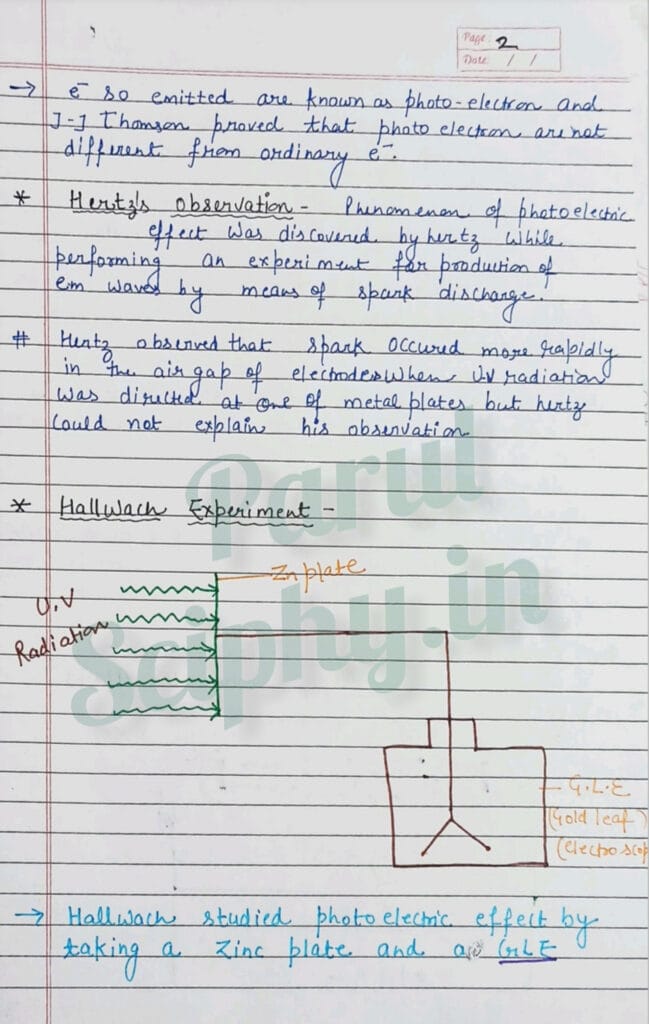 Page: 2
Date: / /
→ e⁻ so emitted are known as photo-electron and
J-J Thomson proved that photo electron are not
different from ordinary e⁻.
* Hertz's observation - Phenomenon of photoelectric
effect was discovered by hertz while
performing an experiment for production of
em waves by means of spark discharge.
# Hertz observed that spark occured more rapidly
in the air gap of electrodes when U.V radiation
was directed at one of metal plates but hertz
could not explain his observation
Parul
Sciphy.in
* Hallwach Experiment -
Zn plate
U.V
Radiation
G.L.E
(Gold leaf)
(electroscop
→ Hallwach studied photoelectric effect by
taking a zinc plate and a GLE